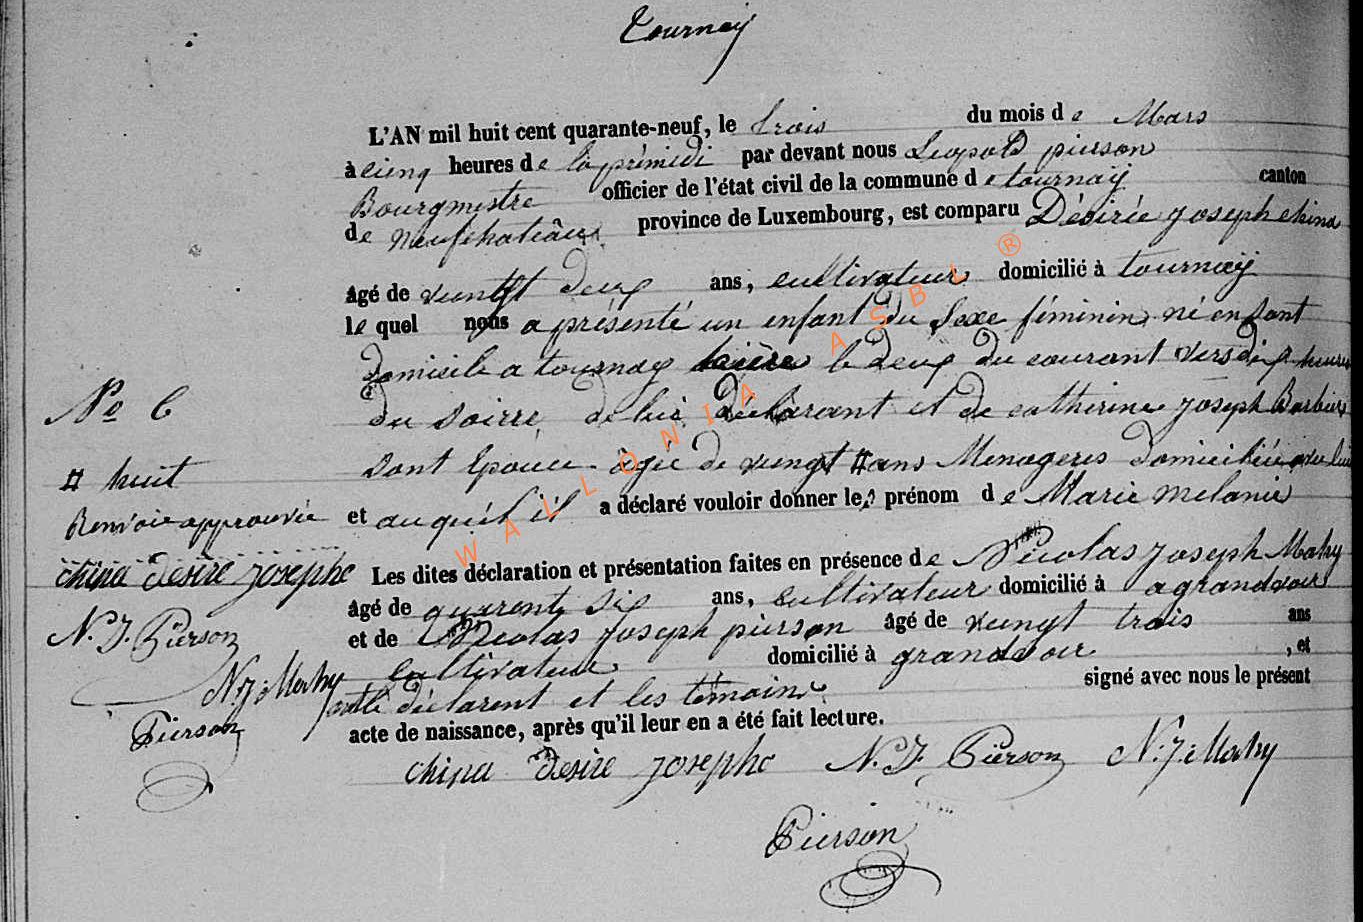 Tournay
L'AN mil huit cent quarante-neuf, le trois du mois de Mars
à cinq heures de la prémidi par devant nous Leopold pierson
Bourgmestre officier de l'état civil de la commune de tournay canton
de neufchateau province de Luxembourg, est comparu Désirée joseph china
âgé de vingt deux ans, cultivateur domicilié à tournay
le quel nous a présenté un enfant du sexe féminin, né en sont
domicile a tournay hière le deux du courant vers dix heures
No 6
du soirre, de lui déclarant et de catherine joseph Barbier
sont Epouse âgée de vingt # ans Menageres domiciliée avec lui
# huit
Renvoie approuvée
et auquél il a déclaré vouloir donner les prénom de Marie melanie
china desire josephe
Les dites déclaration et présentation faites en présence de Nicolas joseph Mahy
âgé de quarente six ans, cultivateur domicilié à a grandvoir
N. J. Pierson
et de Nicolas joseph pierson âgé de vingt trois ans
cultivateur domicilié à grandvoir, et
N. J. Mahy
déclarent et les témoins signé avec nous le présent
Pierson
acte de naissance, après qu'il leur en a été fait lecture.
china desire josephe N. J. Pierson N. J. Mahy
Pierson
WALLONIA ASBL ®